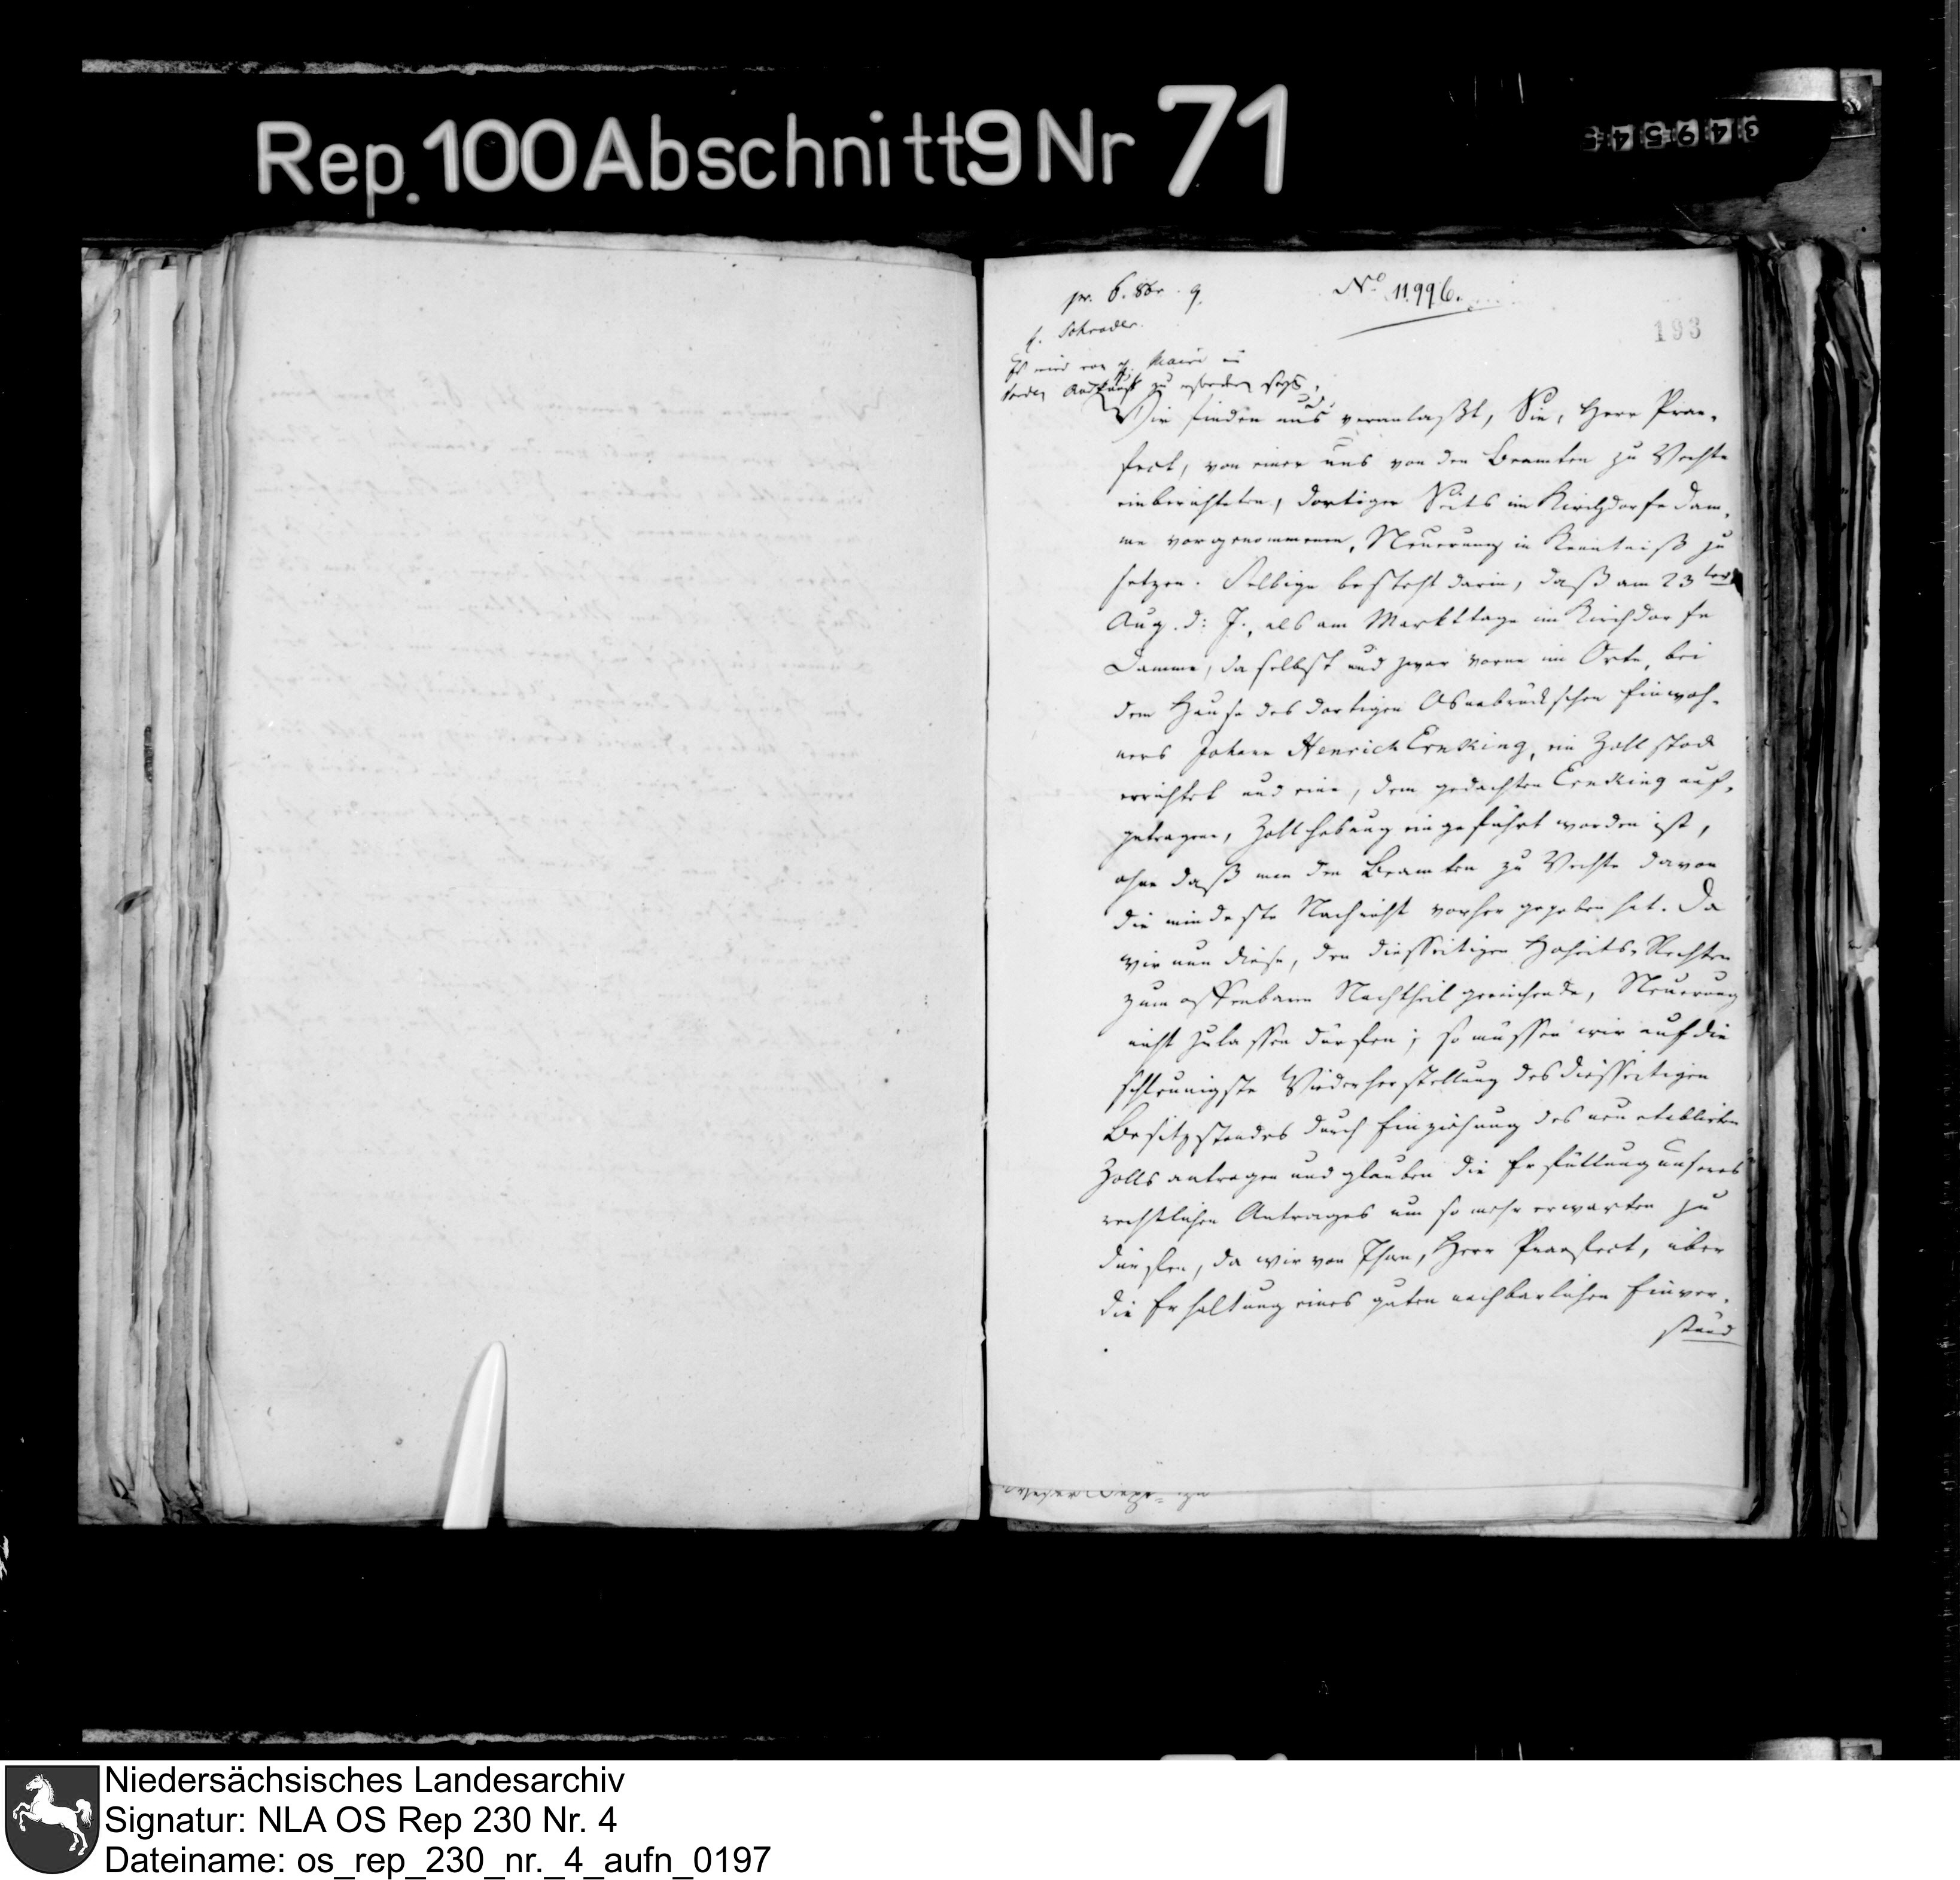 Rep. 100 Abschnitt 9 Nr 71
pr. 6. 8br. 9.
No 11,996.
193
f. Schrader.
Wir finden uns veranlaßt, Sie, Herr Prae-
fect, von einer uns von den Beamten zu Vechte
einberichteten, dortiger Seits im Kirchdorfe Dam-
me vorgenommenen, Neuerung in Kenntniß zu
setzen. Selbige besteht darin, daß am 23ten
Aug. d: J., als am Markttage im Kirchdorfe
Damme, daselbst und zwar vorne im Orte, bei
dem Hause des dortigen Osnabrückschen Einwoh-
ners Johann Henrich Ernking, ein Zollstock
errichtet und eine, dem gedachten Ernking auf-
getragene, Zollhebung eingeführt worden ist,
ohne daß man den Beamten zu Vechte davon
die mindeste Nachricht vorher gegeben hat. Da
wir nun diese, den diesseitigen Hoheits-Rechten
zum offenbaren Nachtheil gereichende, Neuerung
nicht zulassen dürfen; so müssen wir auf die
schleunigste Wiederherstellung des diesseitigen
Besitzstandes durch Einziehung des neu etablirten
Zolls antragen und glauben die Erfüllung unseres
rechtlichen Antrages um so mehr erwarten zu
dürfen, da wir von Ihnen, Herr Praefect, über
die Erhaltung eines guten nachbarlichen Einver-
ständ
Niedersächsisches Landesarchiv
Signatur: NLA OS Rep 230 Nr. 4
Dateiname: os_rep_230_nr._4_aufn_0197